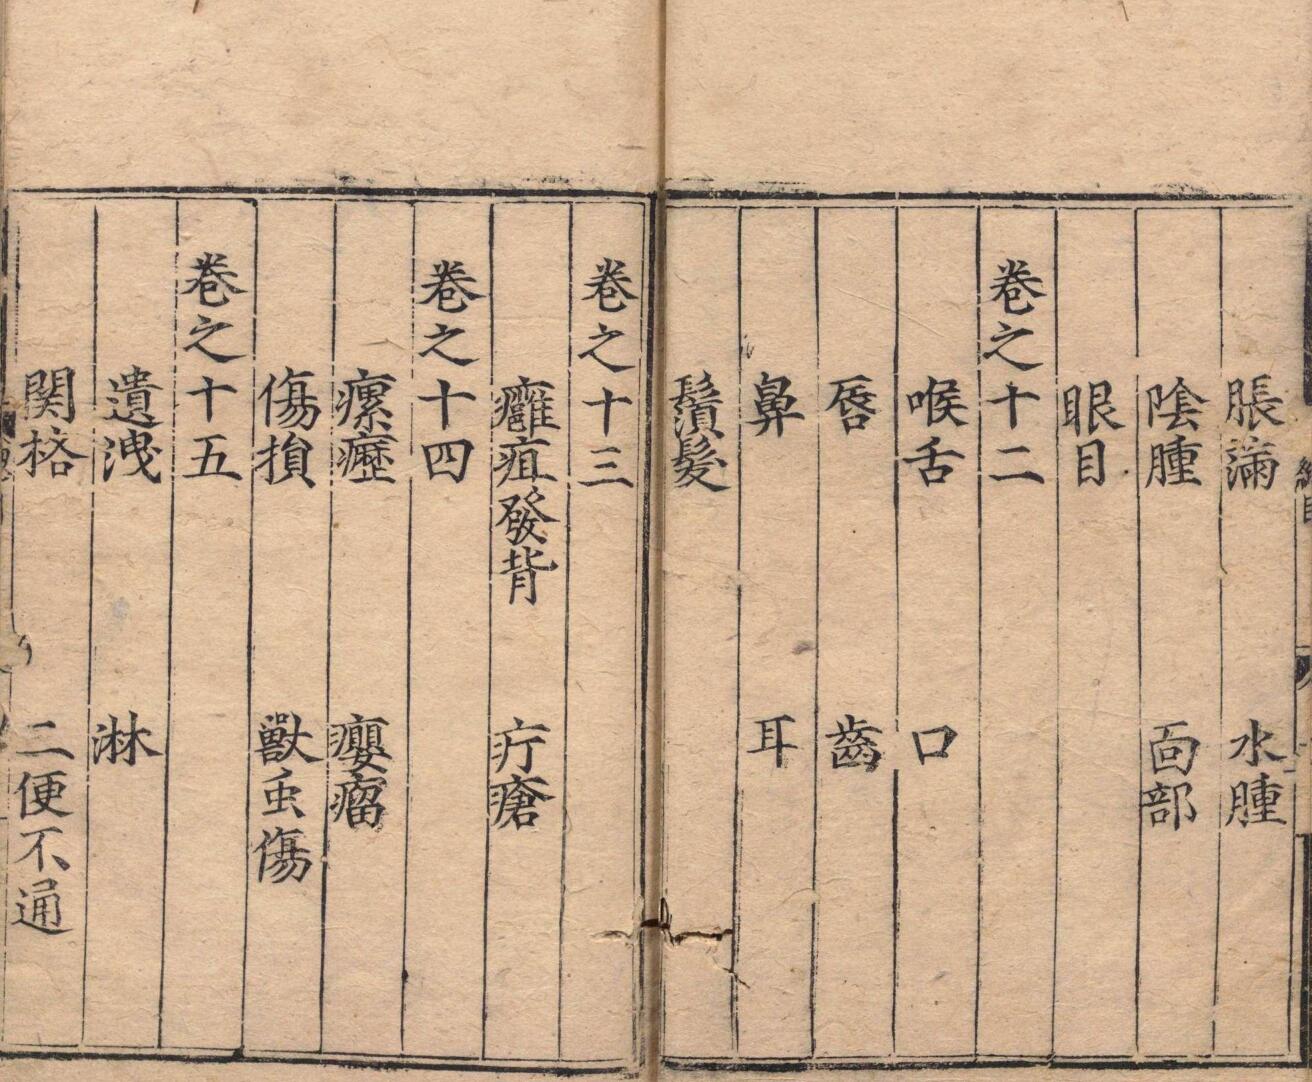 脹滿　水腫
陰腫　面部
眼目
卷之十二
喉舌　口
唇　齒
鼻　耳
鬚髮
卷之十三
癰疽發背　疔瘡
卷之十四
瘰癧　癭瘤
傷損　獸虫傷
卷之十五
遺洩　淋
関格　二便不通